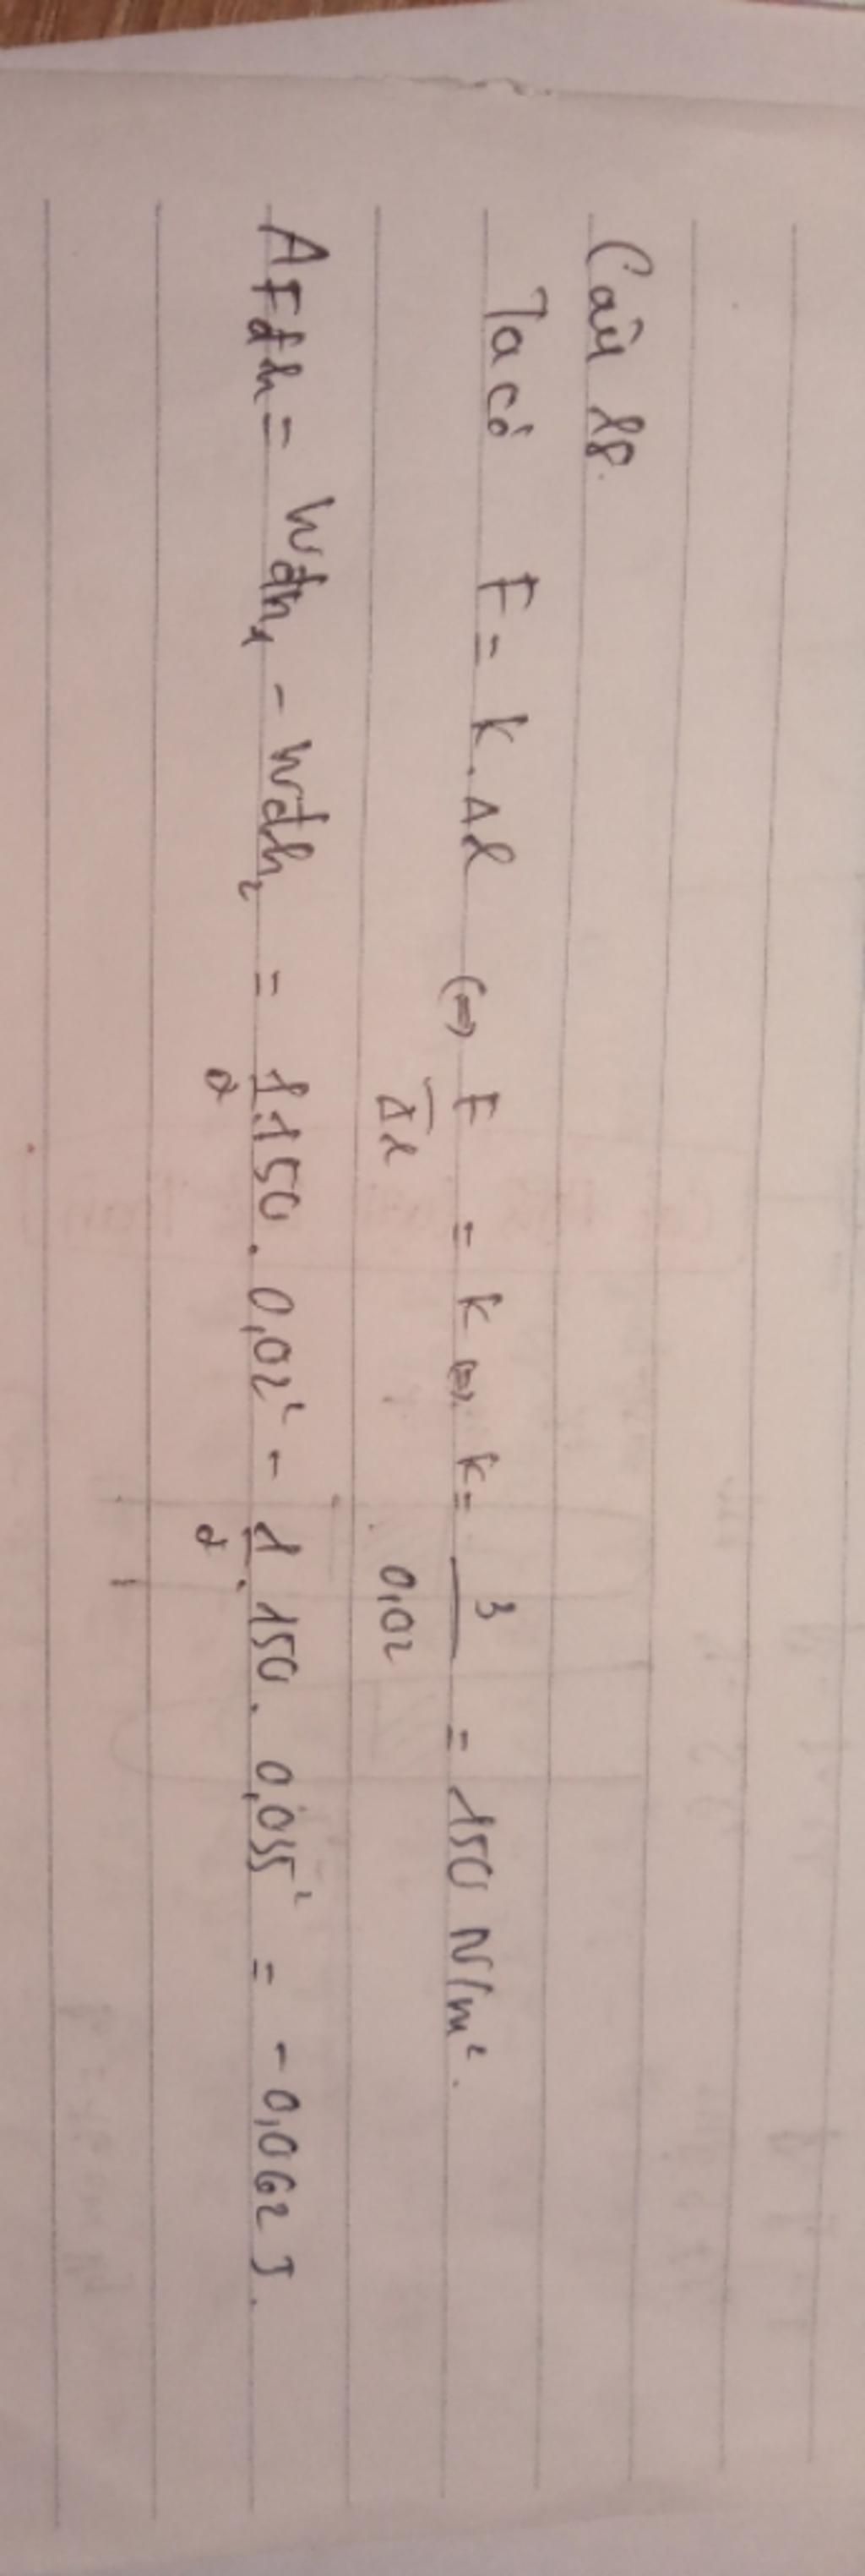 Câu 18.
Ta có F = k.Δl (=) F/Δl = k (=) k = 3/0,02 = 150 N/m².
AFđh = Wđh₁ - Wđh₂ = 1/2.150.0,02² - 1/2.150.0,035² = -0,062 J.